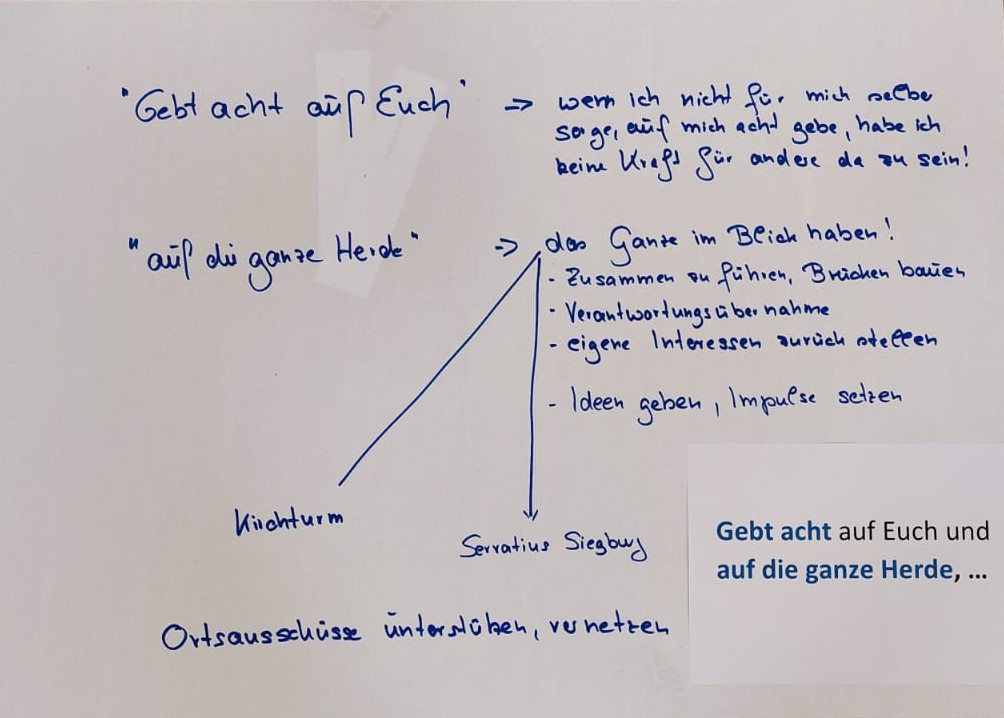 "Gebt acht auf Euch" => wenn ich nicht für mich selbe
sorge, auf mich acht gebe, habe ich
keine Kraft für andere da zu sein!
"auf die ganze Herde" => das Ganze im Blick haben!
- Zusammen zu führen, Brücken bauen
- Verantwortungsübernahme
- eigene Interessen zurück stellen
- Ideen geben, Impulse setzen
Kirchturm
Servatius Siegburg
Gebt acht auf Euch und
auf die ganze Herde, ...
Ortsausschüsse unterstützen, vernetzen